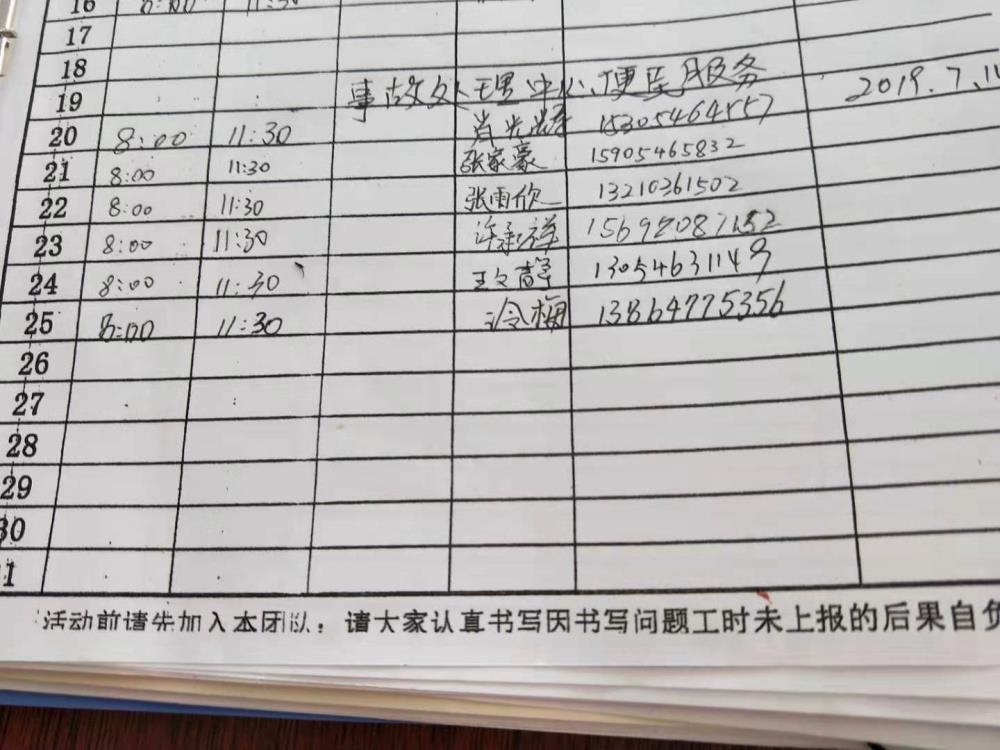 16 8:00 11:30
17
18
19 事故处理中心便民服务 2019.7.
20 8:00 11:30 肖光 15305464557
21 8:00 11:30 张家豪 15905465832
22 8:00 11:30 张雨欣 13210361502
23 8:00 11:30 许承祥
24 8:00 11:30 王文静 13054631149
25 8:00 11:30 冷梅 13864775356
26
27
28
29
30
活动前请先加入本团队,请大家认真书写因书写问题工时未上报的后果自负